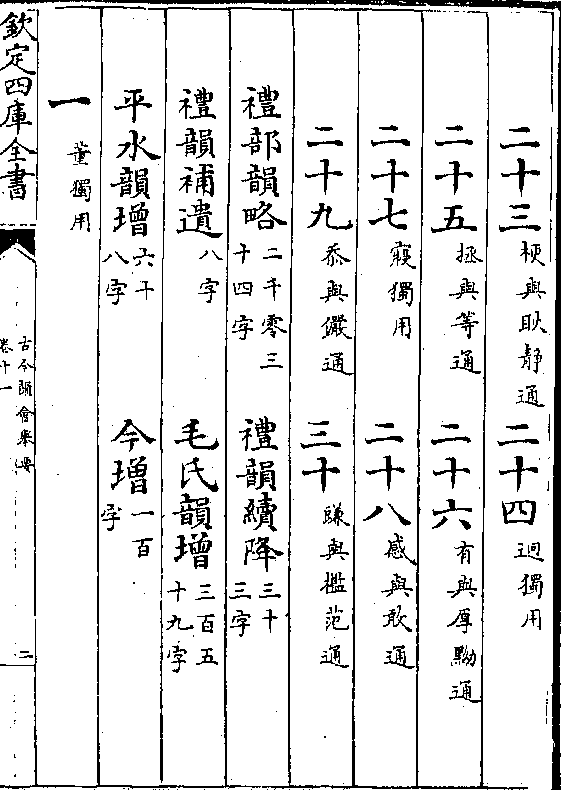 二十三梗與耿靜通二十四迥獨用
二十五拯與等通二十六有與厚黝通
二十七寑獨用二十八感與敢通
二十九忝與儼通三十豏與檻范通
禮部韻略二千零三十四字禮韻續降三十三字
禮韻補遺八字毛氏韻增三百五十九字
平水韻增六十八字今增一百字
一董獨用
欽定四庫全書
古今韻會舉要
卷十一
二